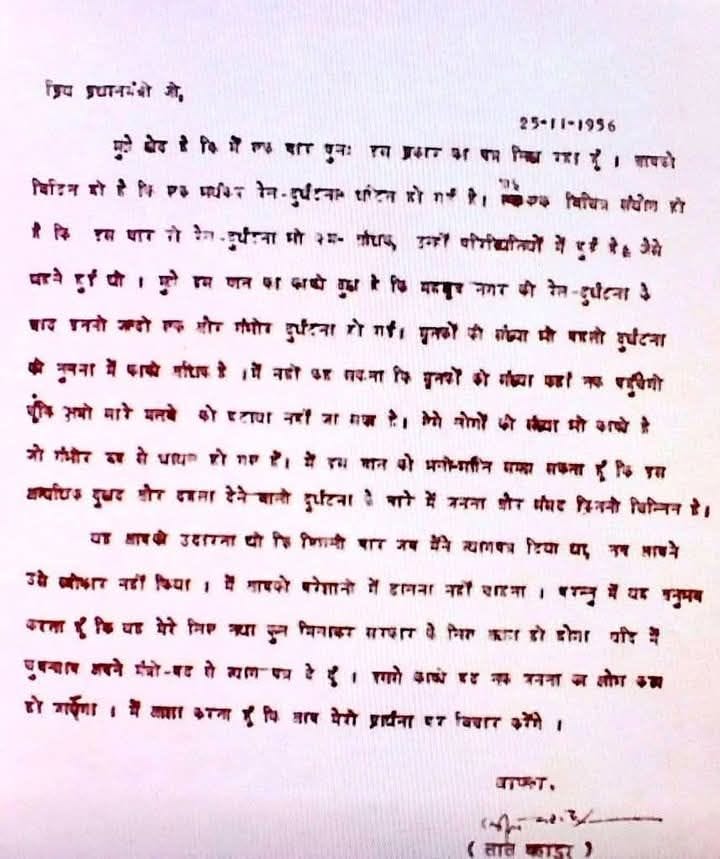 प्रिय प्रधानमंत्री जी,
25-11-1956
मुझे खेद है कि मैं एक बार पुनः इस प्रकार का पत्र लिख रहा हूँ । आपको
विदित ही है कि एक भयंकर रेल-दुर्घटना घटित हो गई है। यह एक विचित्र संयोग ही
है कि इस बार की रेल-दुर्घटना भी कम-अधिक, उन्हीं परिस्थितियों में हुई है, जैसे
पहले हुई थी । मुझे इस बात का काफी दुख है कि महबूब नगर की रेल-दुर्घटना के
बाद इतनी जल्दी एक और गंभीर दुर्घटना हो गई। मृतकों की संख्या भी पहली दुर्घटना
की तुलना में काफी अधिक है । मैं नहीं कह सकता कि मृतकों की संख्या कहां तक पहुंचेगी
चूंकि अभी सारे मलबे को हटाया नहीं जा सका है। ऐसे लोगों की संख्या भी काफी है
जो गंभीर रूप से घायल हो गए हैं। मैं इस बात को भली-भांति समझ सकता हूँ कि इस
अत्यधिक दुखद और दहला देने वाली दुर्घटना के बारे में जनता और संसद कितनी चिन्तित है।
यह आपकी उदारता थी कि पिछली बार जब मैंने त्यागपत्र दिया था, तब आपने
उसे स्वीकार नहीं किया । मैं आपको परेशानी में डालना नहीं चाहता । परन्तु मैं यह अनुभव
करता हूँ कि यह मेरे लिए तथा कुल मिलाकर सरकार के लिए अच्छा ही होगा यदि मैं
चुपचाप अपने मंत्री-पद से त्याग पत्र दे दूँ । इससे काफी हद तक जनता का क्षोभ कम
हो जाएगा । मैं आशा करता हूँ कि आप मेरी प्रार्थना पर विचार करेंगे ।
आपका,
( लाल बहादुर )